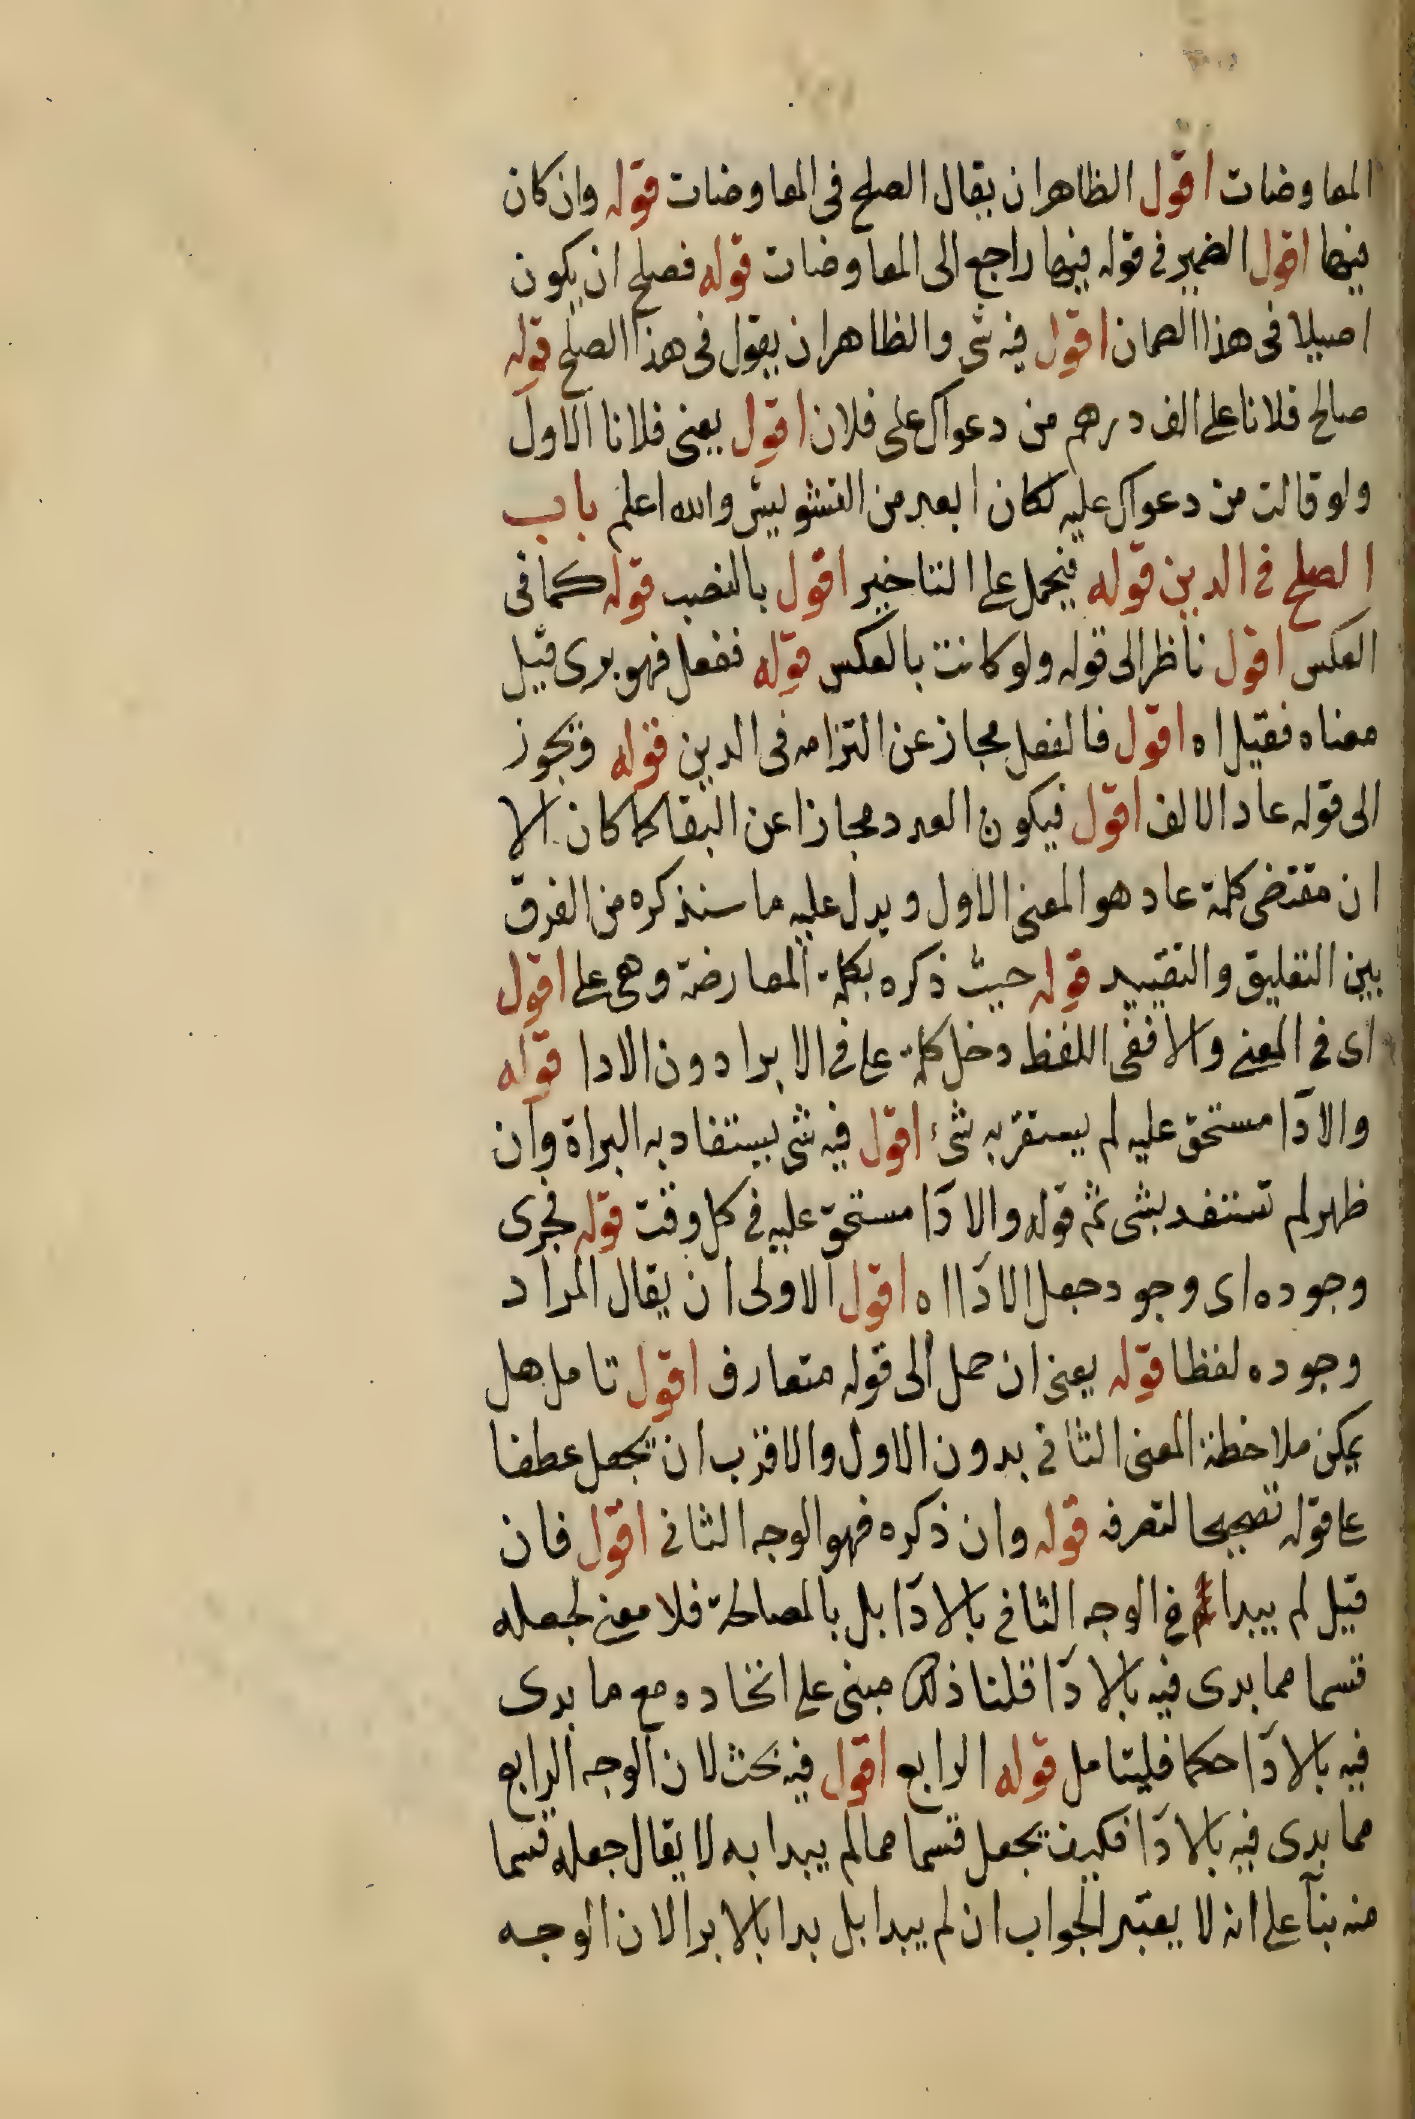 المعاوضات اقول الظاهر ان يقال الصلح فى المعاوضات قوله وان كان
فيها اقول الضمير فى قوله فيها راجع الى المعاوضات قوله فصلح ان يكون
اصيلا فى هذا الضمان اقول فيه شى والظاهر ان يقول فى هذا الصلح قوله
صالح فلانا على الف درهم من دعواك على فلان اقول يعنى فلانا الاول
ولو قالت من دعواك عليه لكان ابعد من التشويش والله اعلم باب
الصلح فى الدين قوله فيحمل على التاخير اقول بالنصب قوله كما فى
العكس اقول ناظر الى قوله ولو كانت بالعكس قوله ففعل فهو برى قيل
معناه فقيل اه اقول فالفعل مجاز عن التزامه فى الدين قوله ويجوز
الى قوله عاد الالف اقول فيكون العود مجازا عن البقا كما كان الا
ان مقتضى كلمة عاد هو المعنى الاول ويدل عليه ما سنذكره من الفرق
بين التعليق والتقييد قوله حيث ذكره بكلمة المعارضة وهى على اقول
اى فى المعنى والا ففى اللفظ دخل كلمة على فى الابرا دون الادا قوله
والادآ مستحق عليه لم يستقر به شئ اقول فيه شى يستفاد به البراة وان
ظهر لم تستفد بشى ثم قوله والادآ مستحق عليه فى كل وقت قوله فجرى
وجوده اى وجود جعل الادآ اه اقول الاولى ان يقال المراد
وجوده لفظا قوله يعنى ان حمل الى قوله متعارف اقول تامل هل
يمكن ملاحظة المعنى الثانى بدون الاول والاقرب ان يجعل عطفا
على قوله تصحيحا لتصرفه قوله وان ذكره فهو الوجه الثانى اقول فان
قيل لم يبدا فى الوجه الثانى بالادآ بل بالمصالحة فلا معنى لجعله
قسما مما بدى فيه بالادآ قلنا ذلك مبنى على اتحاده مع ما بدى
فيه بالادآ حكما فليتامل قوله الرابع اقول فيه بحث لان الوجه الرابع
مما بدى فيه بالادآ فكيف يجعل قسما مما لم يبدا به لا يقال جعله قسما
منه بنآ على انه لا يعتبر الجواب ان لم يبدا بل بدا بالابرا لان الوجه